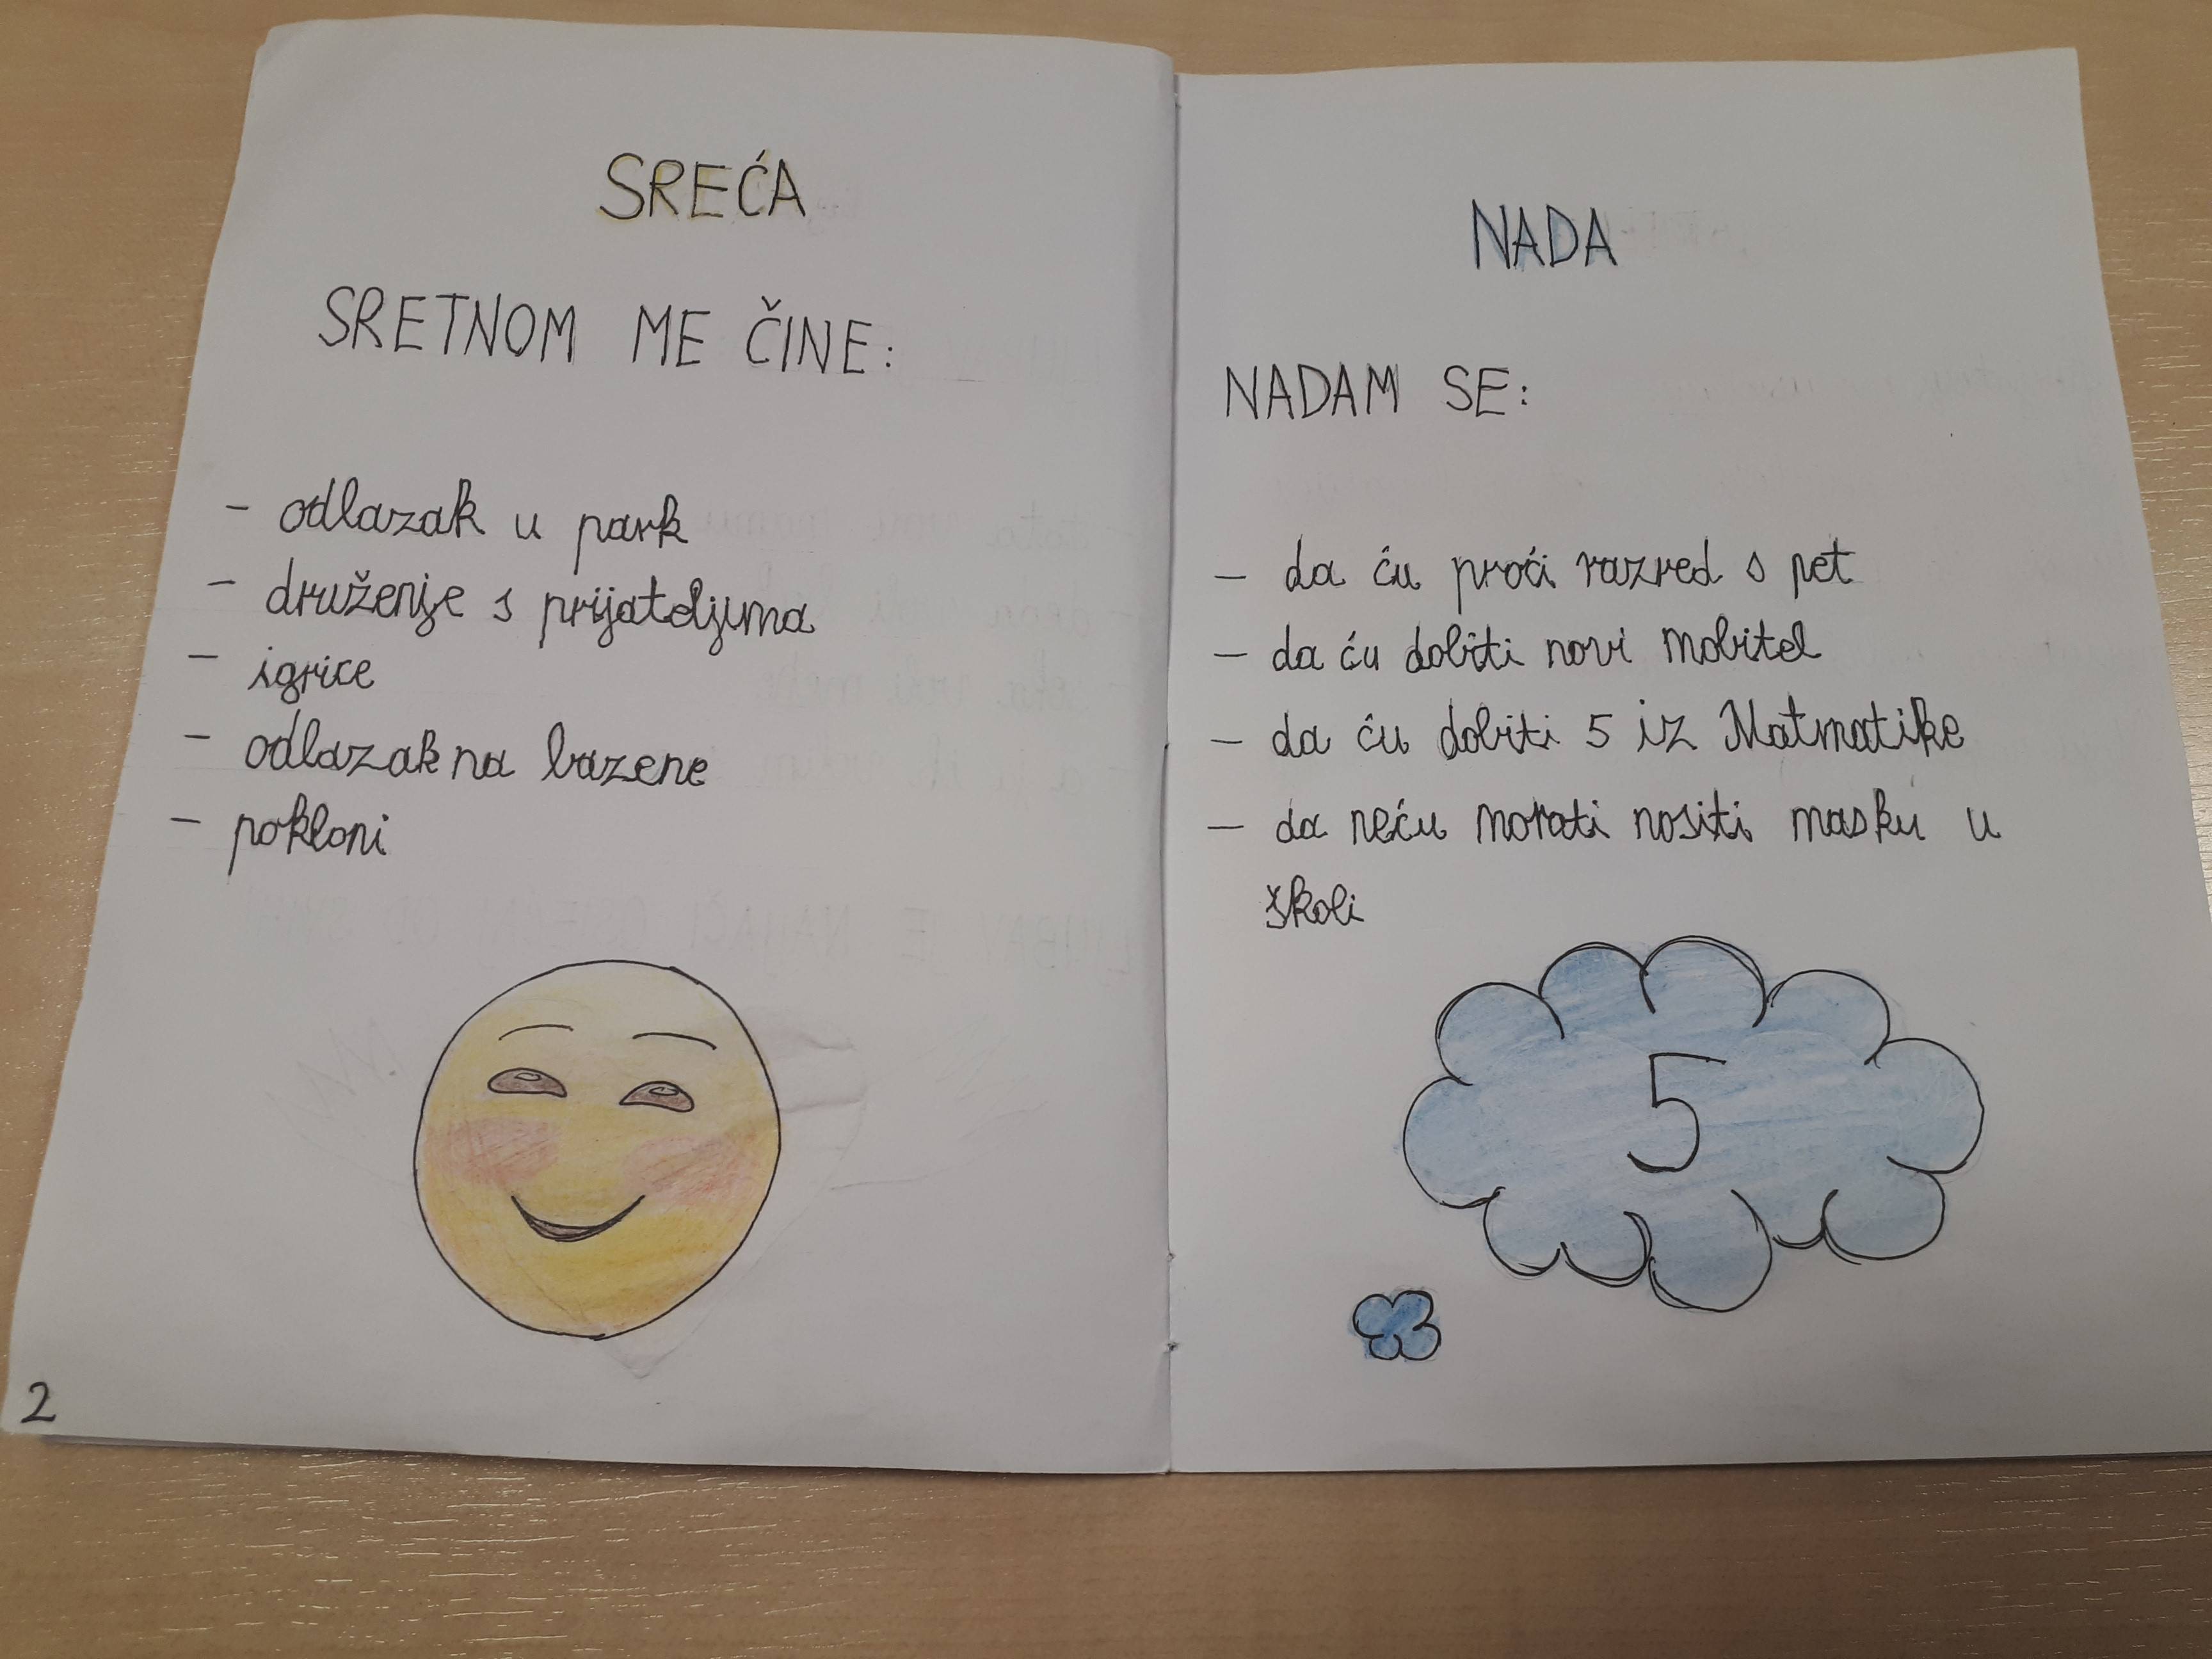 SREĆA
SRETNOM ME ČINE:
- odlazak u park
- druženje s prijateljima
- igrice
- odlazak na bazene
- pokloni
2
NADA
NADAM SE:
- da ću proći razred s pet
- da ću dobiti novi mobitel
- da ću dobiti 5 iz Matmatike
- da neću morati nositi masku u
školi
5